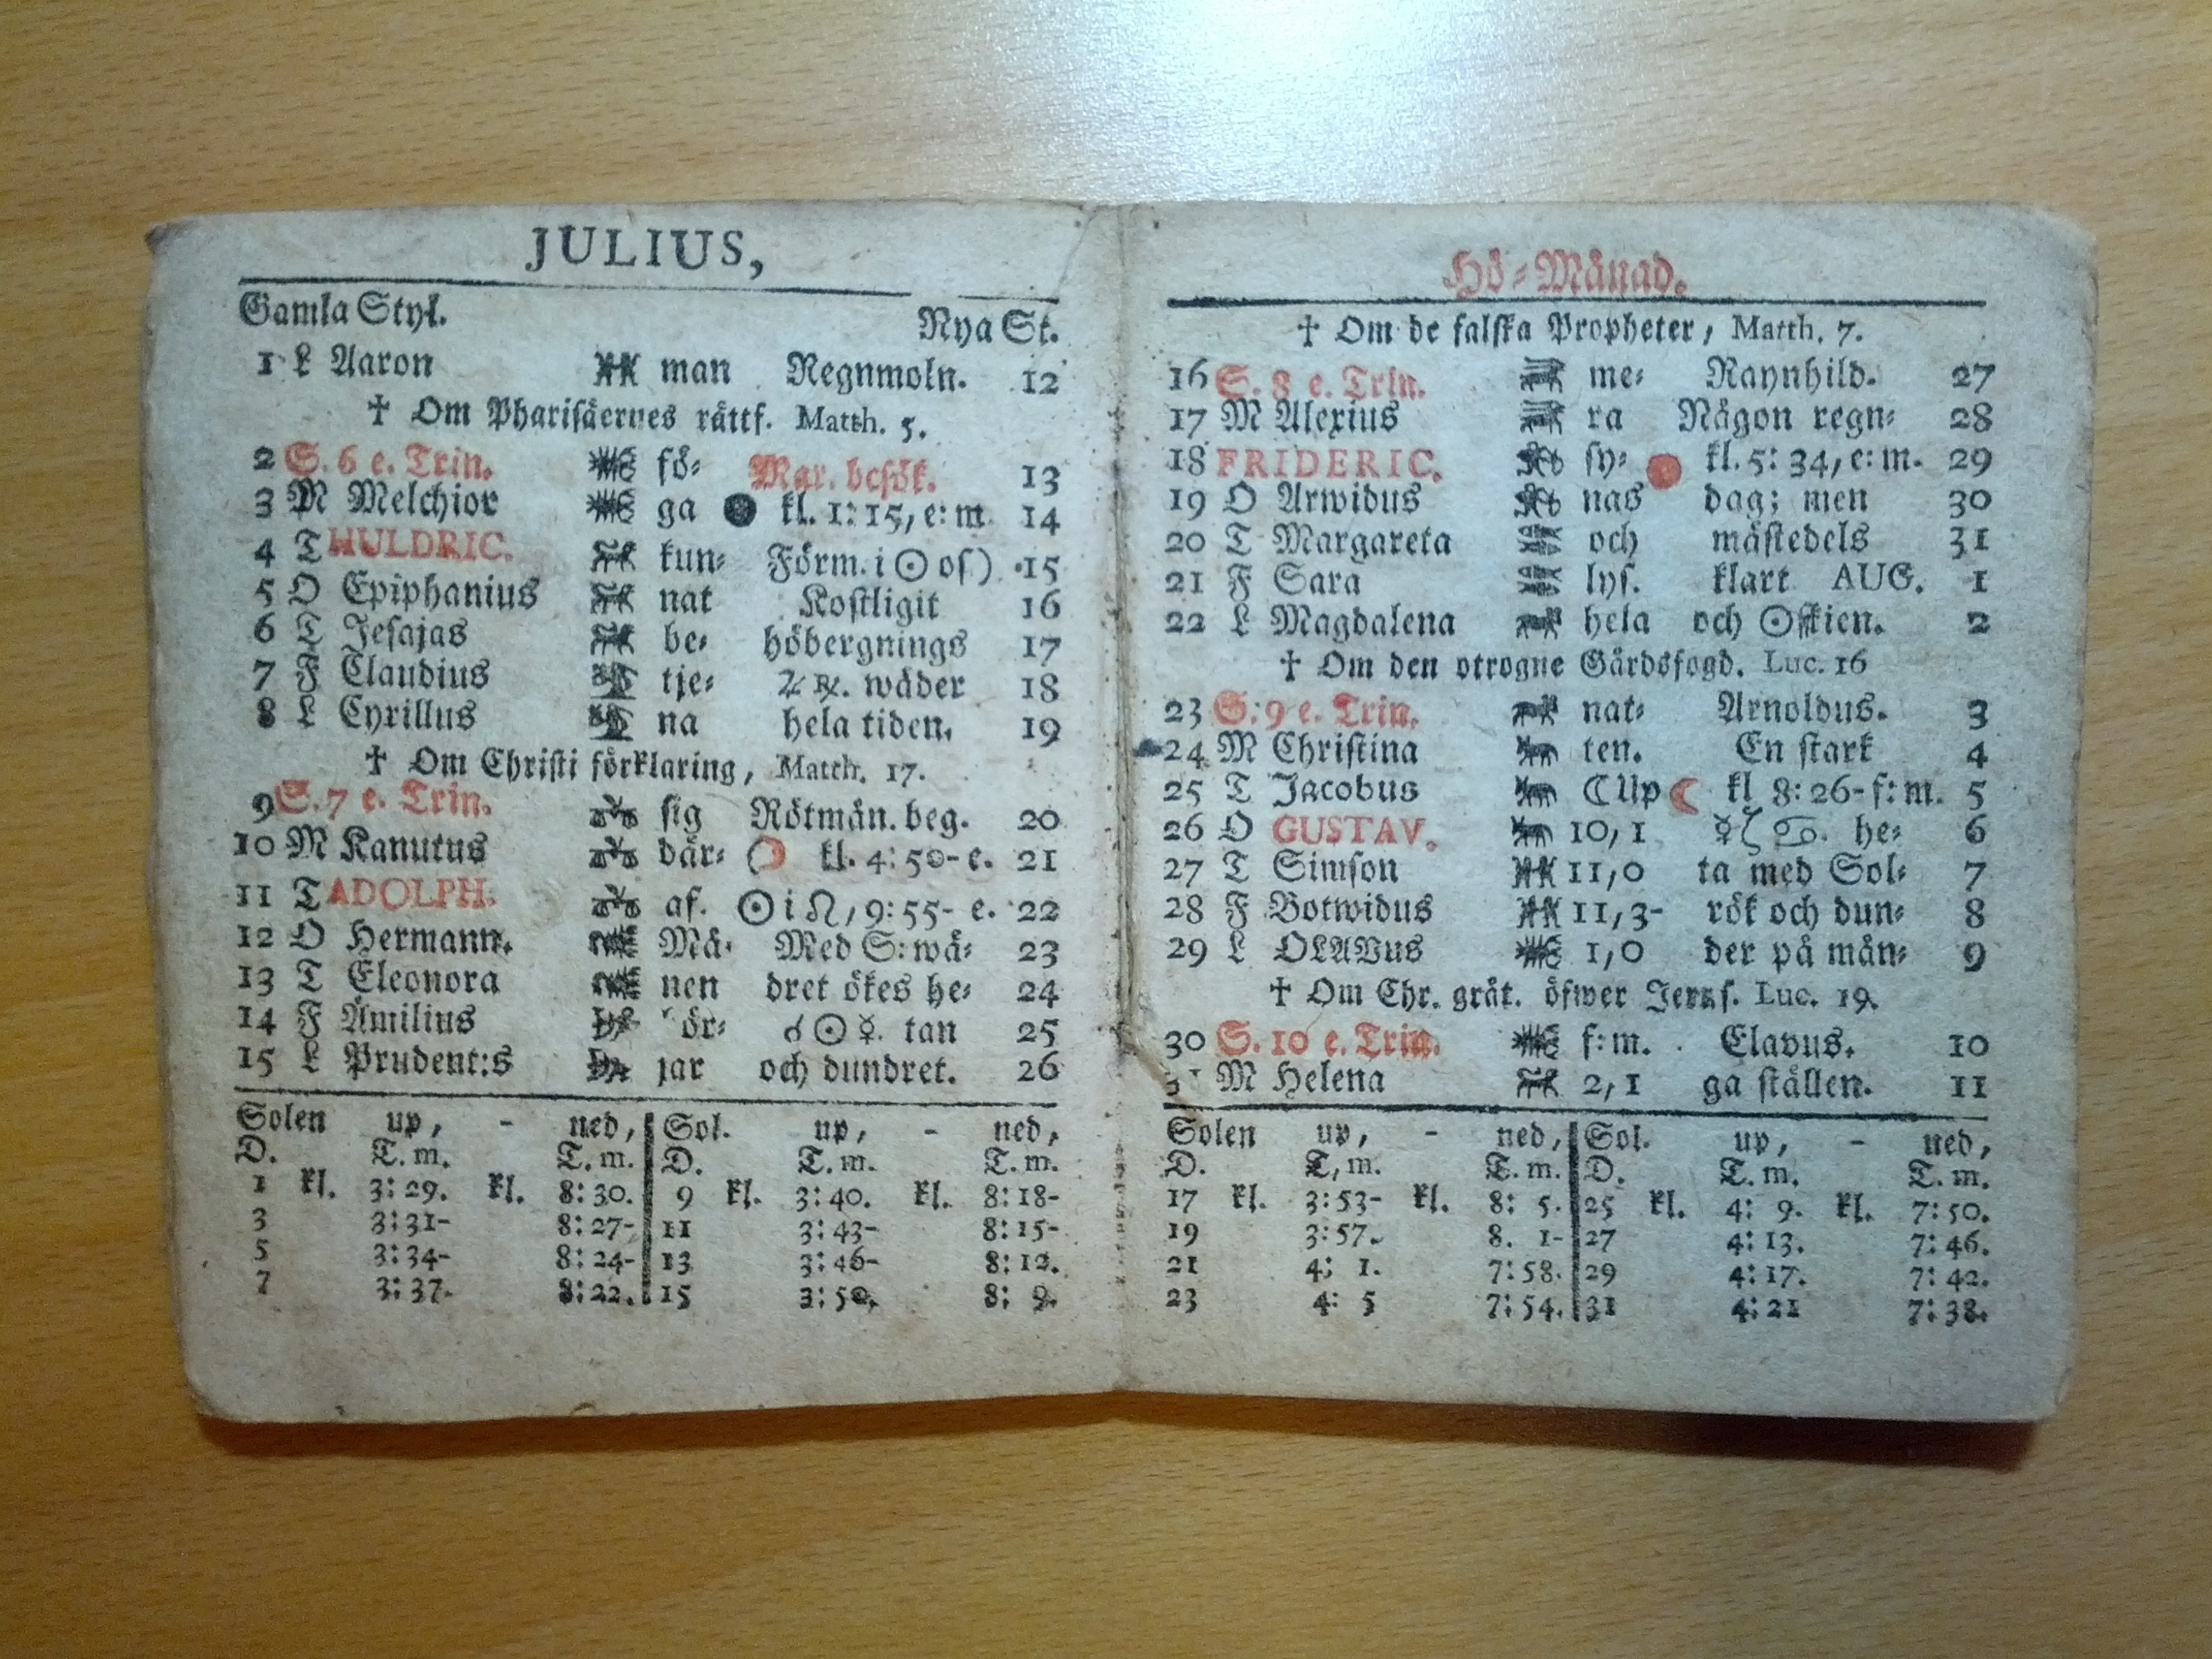 JULIUS,
Gamla Styl. Nya St.
1 L Aaron man Regnmoln. 12
† Om Phariſäernes rättf. Matth. 5.
2 S. 6 e. Trin. fö⸗ Mar. beſök. 13
3 M Melchior ga ● kl. 1: 15, e: m 14
4 T HULDRIC. kun⸗ Förm. i ☉ oſ) 15
5 O Epiphanius nat Koſtligit 16
6 T Jeſajas be⸗ höbergnings 17
7 F Claudius tje⸗ ♃ ℞. wäder 18
8 L Cyrillus na hela tiden. 19
† Om Chriſti förklaring, Matth. 17.
9 S. 7 e. Trin. ſig Rötmån. beg. 20
10 M Kanutus där⸗ ☽ kl. 4: 50- e. 21
11 T ADOLPH. af. ☉ i ♌, 9: 55- e. 22
12 O Hermann. Må⸗ Med S: wä⸗ 23
13 T Eleonora nen dret ökes he⸗ 24
14 F Ämilius ör⸗ ☌ ☉ ☿. tan 25
15 L Prudent:s jar och dundret. 26
Solen up, - ned, Sol. up, - ned,
D. T. m. T. m. D. T. m. T. m.
1 kl. 3: 29. kl. 8: 30. 9 kl. 3: 40. kl. 8: 18-
3 3: 31- 8: 27- 11 3: 43- 8: 15-
5 3: 34- 8: 24- 13 3: 46- 8: 12.
7 3: 37. 8: 22. 15 3: 50. 8: 9.
Hö⸗Månad.
† Om de falſka Propheter, Matth. 7.
16 S. 8 e. Trin. me⸗ Raynhild. 27
17 M Alexius ra Någon regn⸗ 28
18 FRIDERIC. ſy⸗ kl. 5: 34, e: m. 29
19 O Arwidus nas dag; men 30
20 T Margareta och mäſtedels 31
21 F Sara lyſ. klart AUG. 1
22 L Magdalena hela och ☉ſkien. 2
† Om den otrogne Gårdsfogd. Luc. 16
23 S. 9 e. Trin. nat⸗ Arnoldus. 3
24 M Chriſtina ten. En ſtark 4
25 T Jacobus ☾ Up ☾ kl 8: 26- f: m. 5
26 O GUSTAV. 10, 1 ☿ ♋. he⸗ 6
27 T Simſon 11, 0 ta med Sol⸗ 7
28 F Botwidus 11, 3- rök och dun⸗ 8
29 L OLAVus 1, 0 der på mån⸗ 9
† Om Chr. gråt. öfwer Jeruſ. Luc. 19.
30 S. 10 e. Trin. f: m. Elavus. 10
31 M Helena 2, 1 ga ſtällen. 11
Solen up, - ned, Sol. up, - ned,
D. T, m. T. m. D. T. m. T. m.
17 kl. 3: 53- kl. 8: 5. 25 kl. 4: 9. kl. 7: 50.
19 3: 57. 8. 1- 27 4: 13. 7: 46.
21 4: 1. 7: 58. 29 4: 17. 7: 42.
23 4: 5 7: 54. 31 4: 21 7: 38.